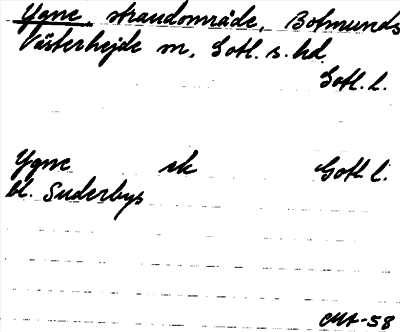 Ygne, strandområde, Botmunds
Västerhejde sn, Gotl. s. hd
Gotl. l.
Ygne sk Gotl. l.
bl. Suderbys
-58